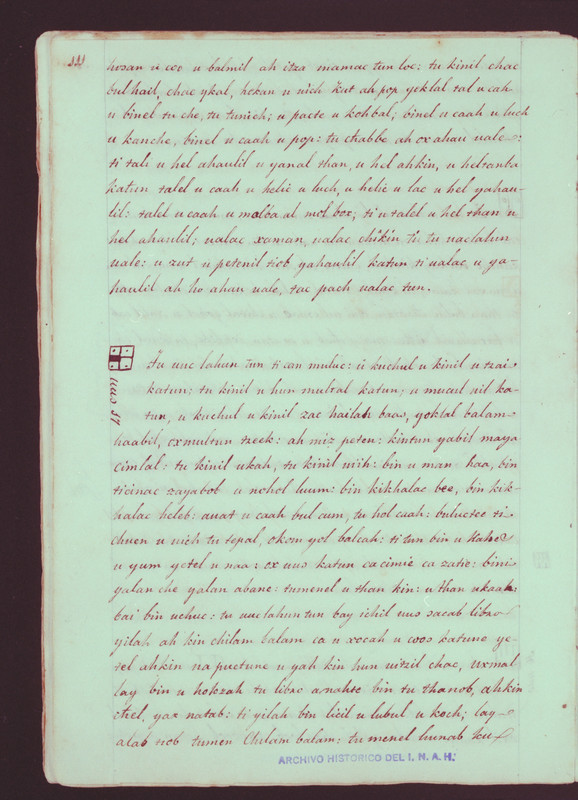 hosan u uoo u balmil ah itza mamac tun loc: tu kinil chac
bul hail, chac ykal, hokan u uich Kut ah pop yoklal tal u cah
u binel tu che, tu tunich; u pacte u kohbal; binel u caah u luch
u kanche, binel u caah u pop: tu chabbe ah ox ahau uale:
ti tali u hel ahaulil u yanal than, u hel ahkin, u heltanba
katun talel u caah u helic u luch, u helic u lac u hel yahau-
lil: talel u caah u molba al mol box, ti u talel u hel than u
hel ahaulil; ualac xaman, ualac chikin ti tu uaclahun
uale: u zut u petenil tiob yahaulil katun ti ualac u ya-
haulil ah ho ahau uale, tac pach ualac tun.
Tu uuc lahun tun ti can muluc: u kuchul u kinil u tzai
uuo 17
katun: tu kinil u hun multal katun; u mucul uil ka-
tun, u kuchul u kinil zac hailah baas, yoklal balam
haabil, ox multun tzek: ah miz peten: kintun yabil maya
cimlal: tu kinil ukah, tu kinil uiih: bin u man haa, bin
ticinac zayabob u nohol luum: bin kikhalac bee, bin kik-
halac heleb: auat u caah bul cum, tu hol caah: buluctee ti
chuen u uich tu tepal, okom yol balcah: ti tun bin u kahes
u yum yetel u naa: ox uuo katun ca cimic ca zatic: bini
yalan che yalan abane: tumenel u than kin: u than ukaah:
bai bin uchuc: tu uuclahun tun bay ichil uuo sacab libro
yilah ah kin chilam balam ca u xocah u uoos katune ye-
tel ahkin na puctune u yah kin hun uitzil chac, uxmal
lay bin u hokzah tu libro anahte bin tu thanob, ahkin
itzel, yax natab: ti yilah bin licil u lubul u koch; lay
alab tiob tumen Chilam balam: tu menel hunab ku
ARCHIVO HISTORICO DEL I. N. A. H.